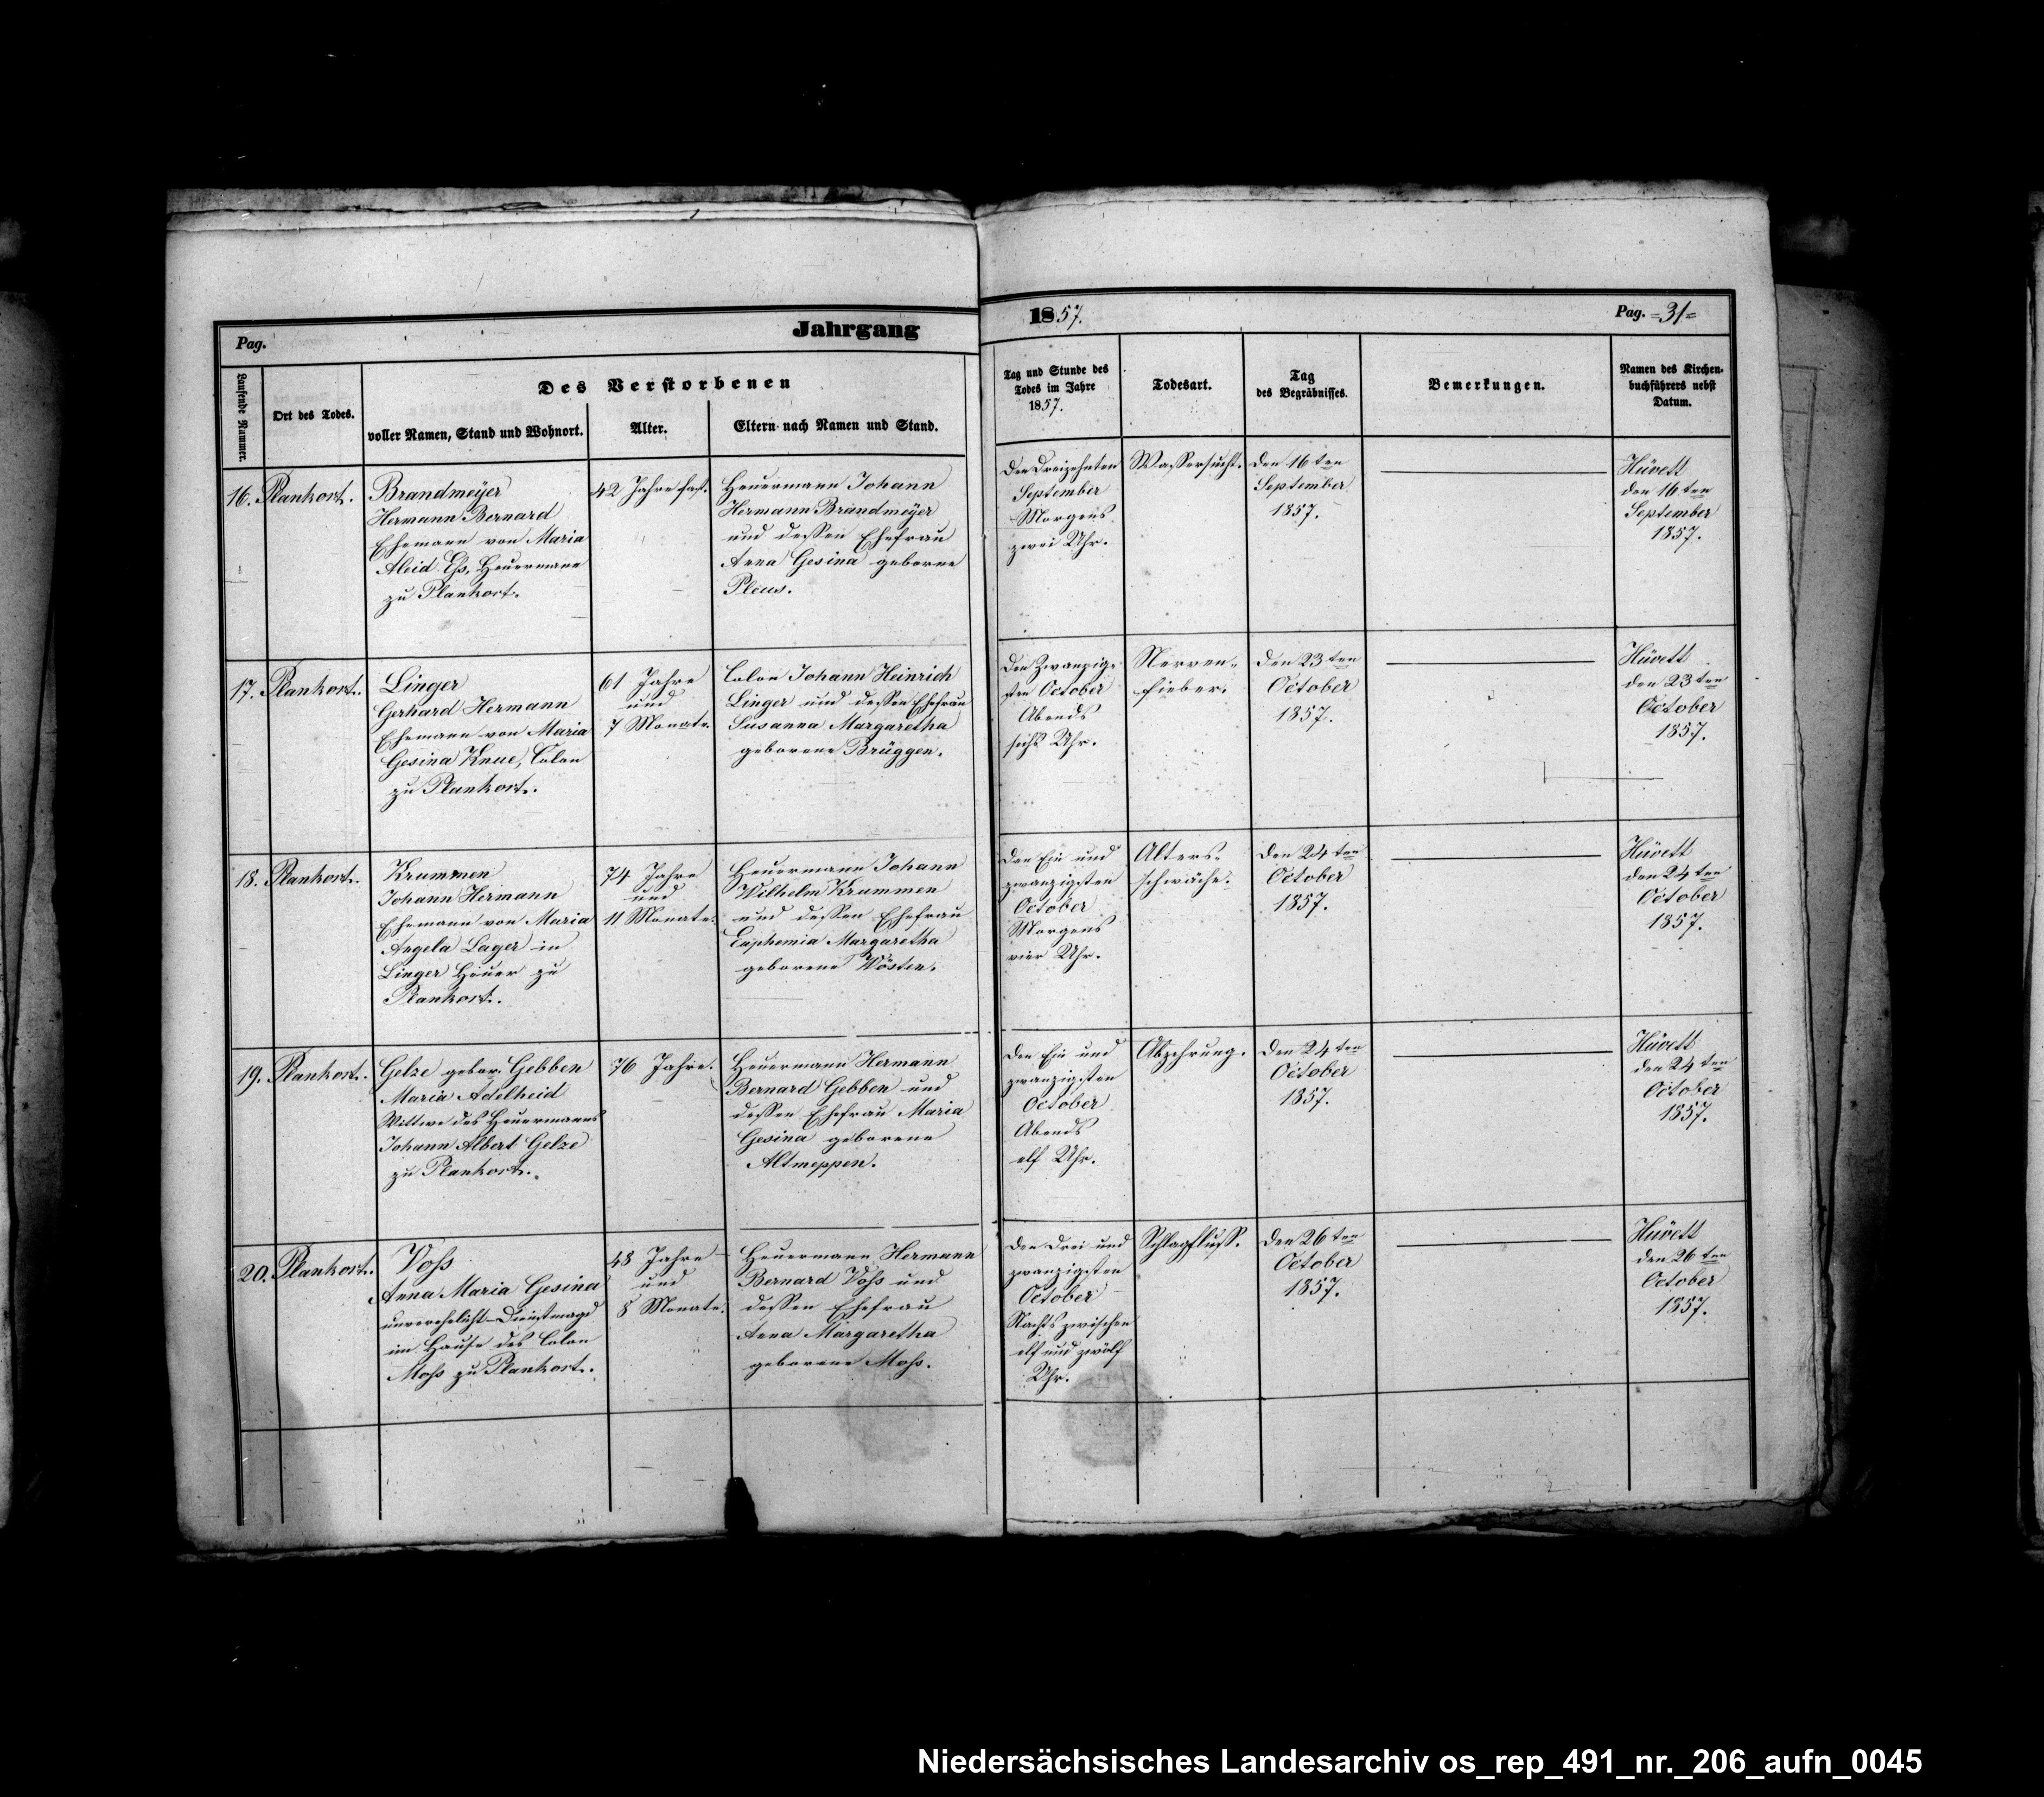 Pag.
Jahrgang
1857.
Pag. =31=
Laufende Nummer.
Ort des Todes.
Des Verstorbenen
voller Namen, Stand und Wohnort.
Alter.
Eltern nach Namen und Stand.
Tag und Stunde des
Todes im Jahre
1857.
Todesart.
Tag
des Begräbnisses.
Bemerkungen.
Namen des Kirchen-
buchführers nebst
Datum.
16.
Plankort.
Brandmeÿer
Hermann Bernard
Ehemann von Maria
Aleid Ehs, Heuermann
zu Plankort.
42 Jahre fast.
Heuermann Johann
Hermann Brandmeÿer
und dessen Ehefrau
Anna Gesina geborne
Pleus.
Den Dreizehnten
September
Morgens
zwei Uhr.
Wassersucht.
Den 16ten
September
1857.
Hüvett
den 16ten
September
1857.
17.
Plankort.
Linger
Gerhard Hermann
Ehemann von Maria
Gesina Knue, Colon
zu Plankort.
61 Jahre
und
7 Monate.
Colon Johann Heinrich
Linger und dessen Ehefrau
Susanna Margaretha
geborene Brüggen.
Den Zwanzig-
sten October
Abends
sechs Uhr.
Nerven-
fieber.
Den 23ten
October
1857.
Hüvett
den 23ten
October
1857.
18.
Plankort.
Krummen
Johann Hermann
Ehemann von Maria
Angela Lager in
Linger Heuer zu
Plankort.
74 Jahre
und
11 Monate.
Heuermann Johann
Wilhelm Krummen
und dessen Ehefrau
Euphemia Margaretha
geborene Wösten.
Den Ein und
zwanzigsten
October
Morgens
vier Uhr.
Alters-
schwäche.
Den 24ten
October
1857.
Hüvett
den 24ten
October
1857.
19.
Plankort.
Gelze gebor. Gebben
Maria Adelheid
Wittwe des Heuermanns
Johann Albert Gelze
zu Plankort.
76 Jahre.
Heuermann Hermann
Bernard Gebben und
dessen Ehefrau Maria
Gesina geborene
Altmeppen.
Den Ein und
zwanzigsten
October
Abends
elf Uhr.
Abzehrung.
Den 24ten
October
1857.
Hüvett
den 24ten
October
1857.
20.
Plankort.
Vohs
Anna Maria Gesina
unverehelicht - Dienstmagd
im Hause des Colon
Mohs zu Plankort.
48 Jahre
und
8 Monate.
Heuermann Hermann
Bernard Vohs und
dessen Ehefrau
Anna Margaretha
geborene Mohs.
Den Drei und
zwanzigsten
October
Nachts zwischen
elf und zwölf
Uhr.
Schlagfluss.
Den 26ten
October
1857.
Hüvett
den 26ten
October
1857.
Niedersächsisches Landesarchiv os_rep_491_nr._206_aufn_0045